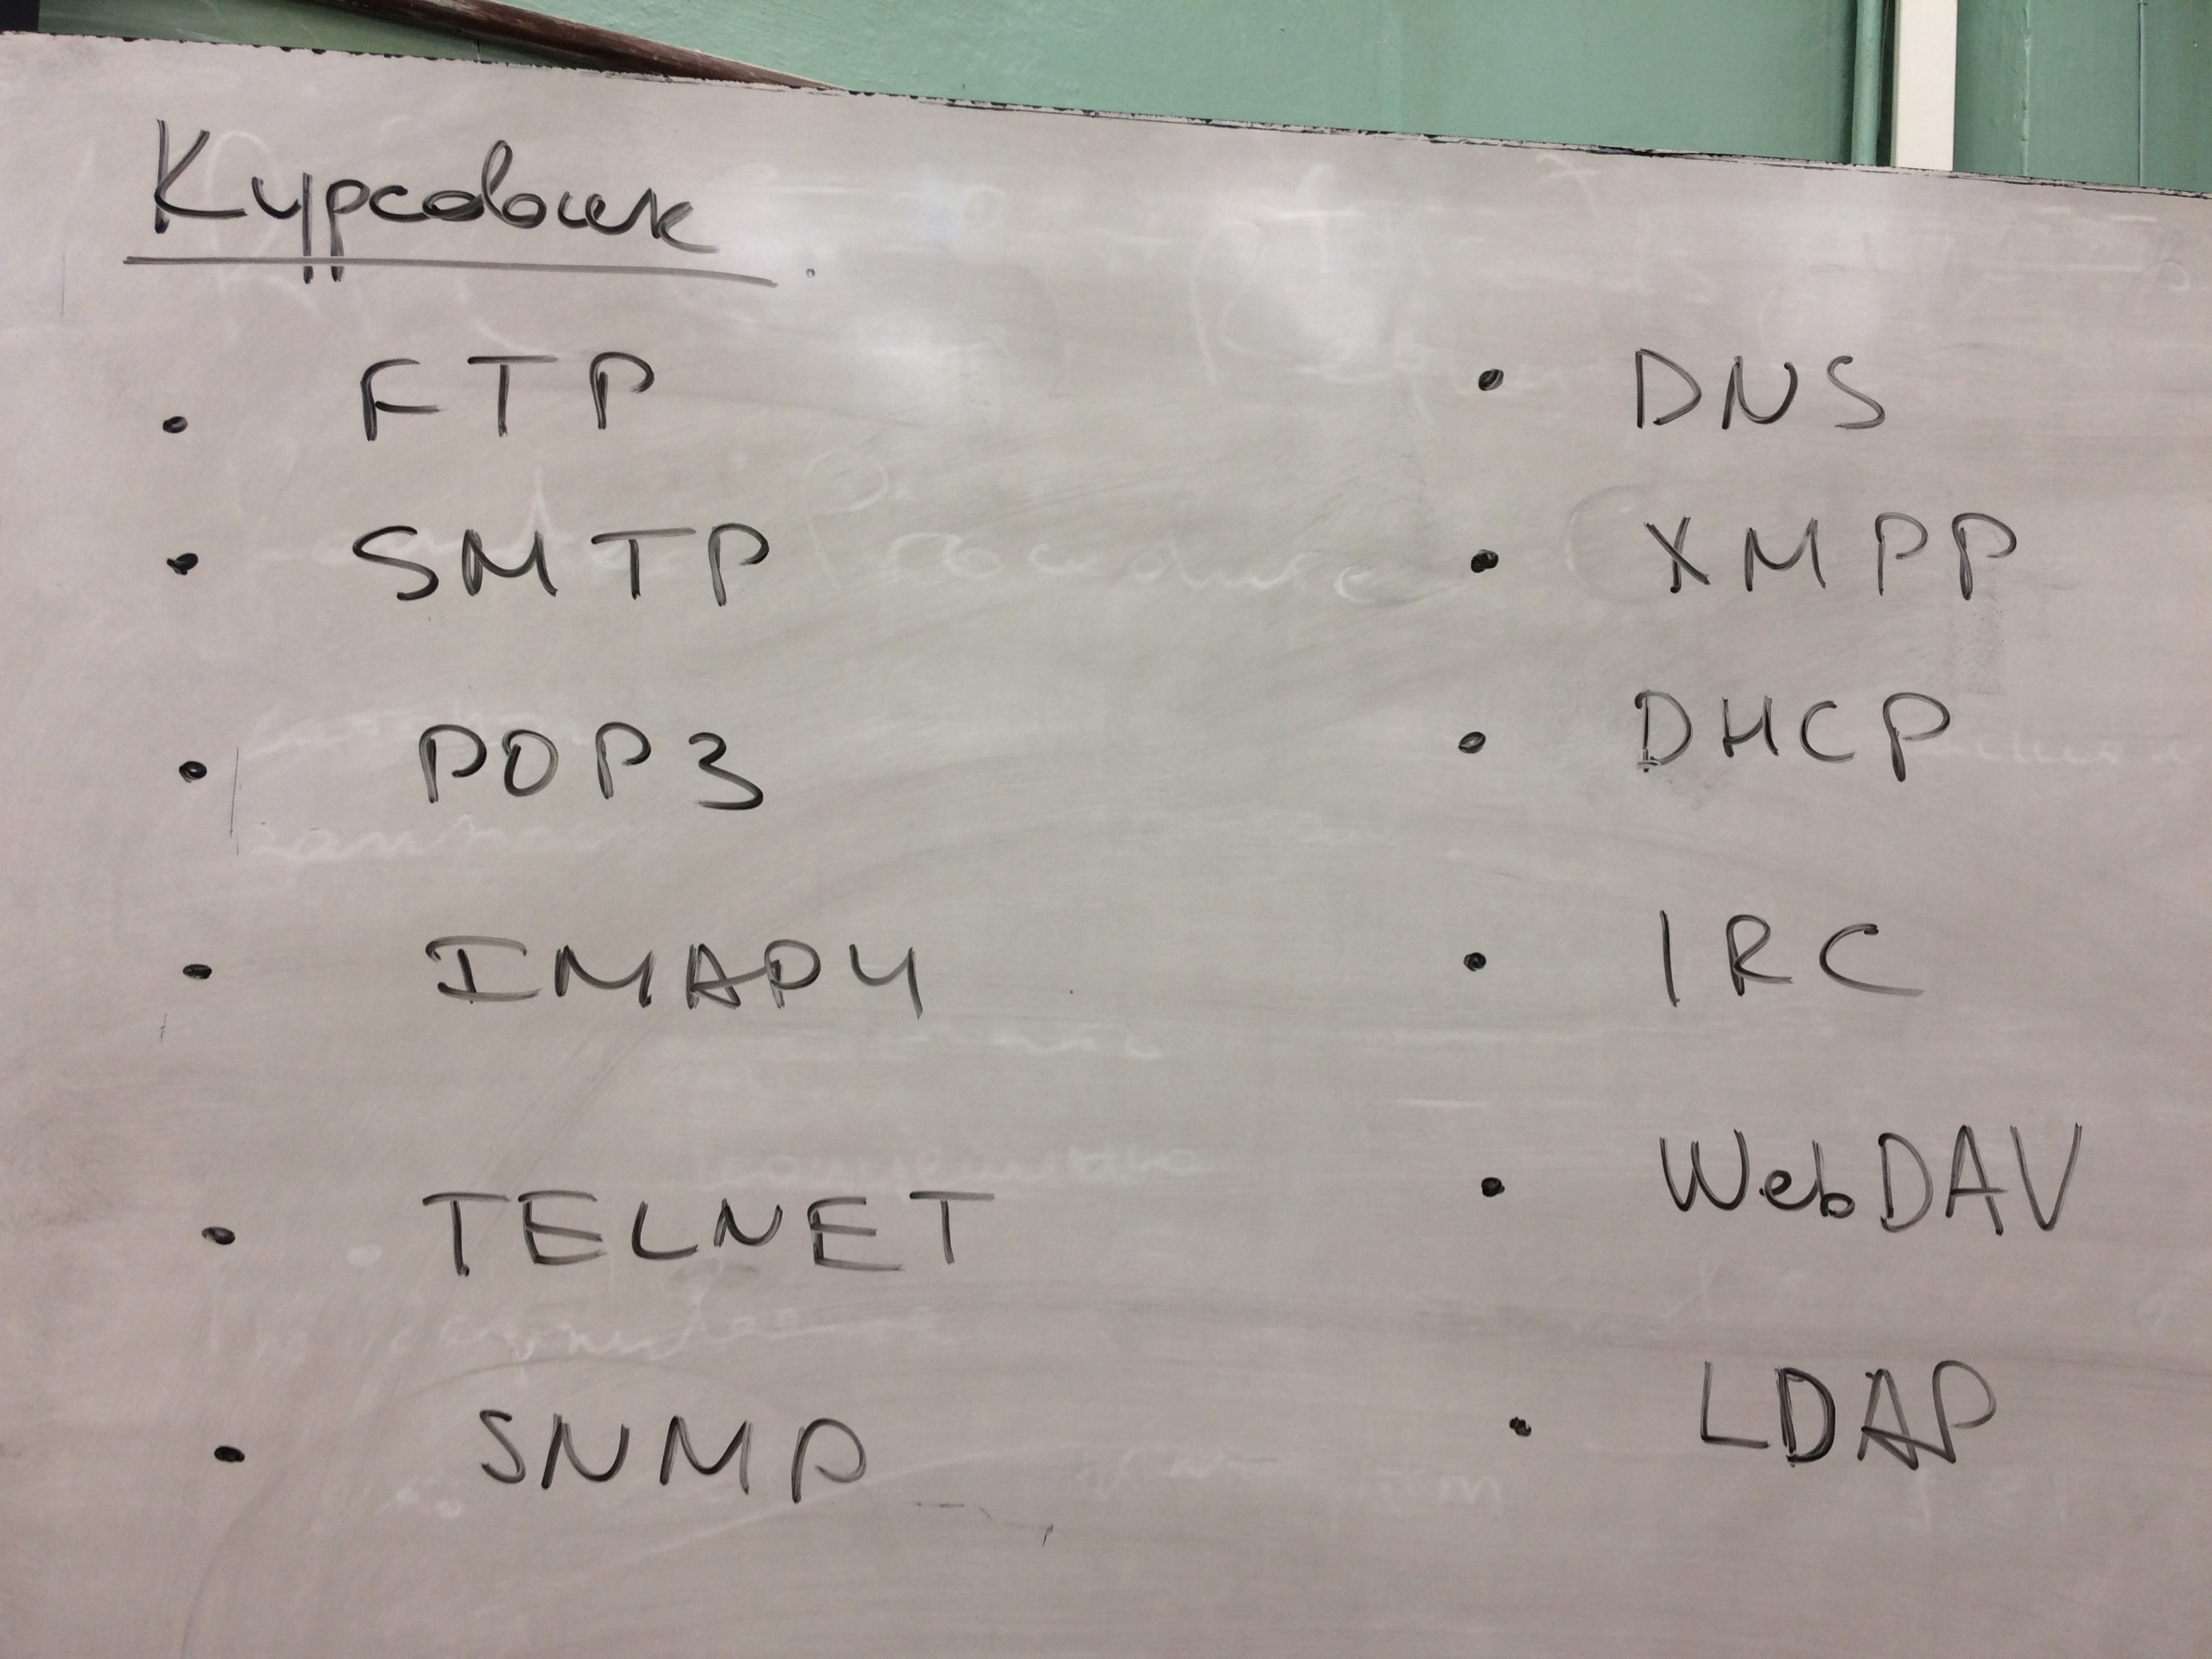 Курсовик
• FTP
• SMTP
• POP3
• IMAP4
• TELNET
• SNMP
• DNS
• XMPP
• DHCP
• IRC
• WebDAV
• LDAP